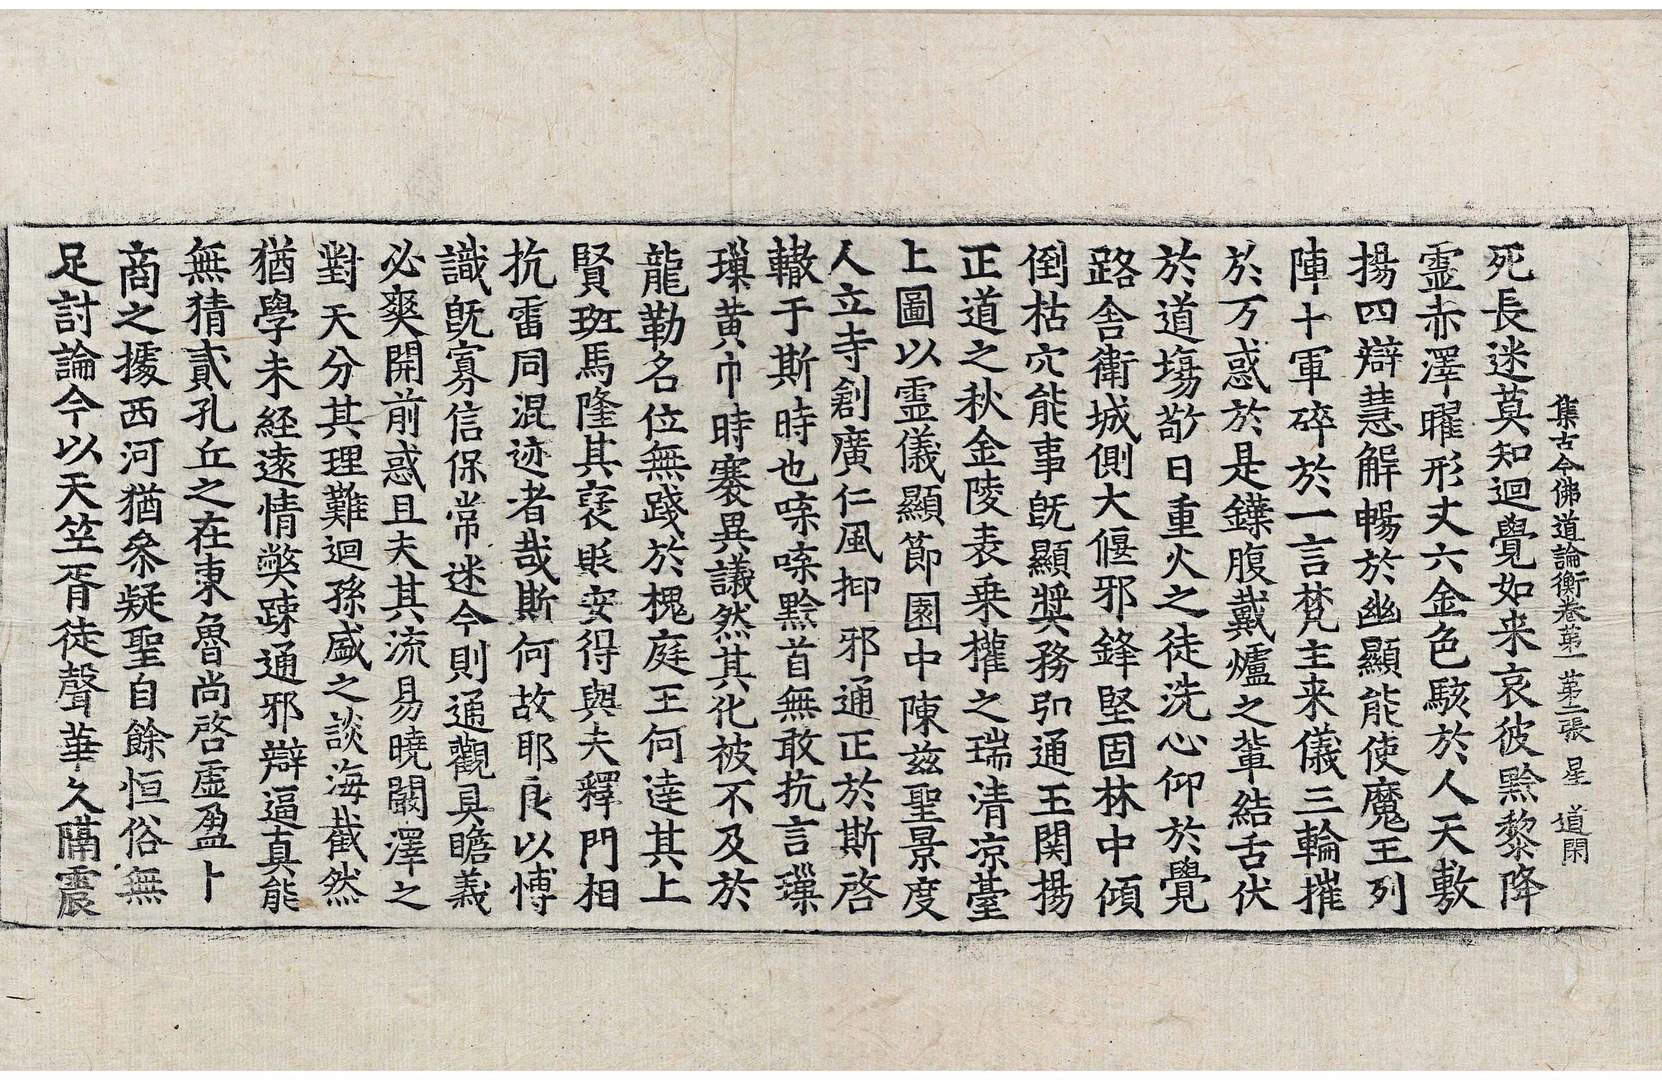 集古今佛道論衡卷第一 第二張 星 道閑
死長迷莫知迴覺如来哀彼黔黎降
霊赤澤曜形丈六金色駭於人天敷
揚四辯慧解暢於幽顯能使魔王列
陣十軍碎於一言梵主来儀三輪摧
於万惑於是鍱腹戴爐之輩結舌伏
於道塲敬日重火之徒洗心仰於覺
路舎衛城側大偃邪鋒堅固林中傾
倒枯穴能事旣顯弉務弘通玉関揚
正道之秋金陵表乗權之瑞清凉臺
上圖以霊儀顯節園中陳兹聖景度
人立寺創廣仁風抑邪通正於斯啓
轍于斯時也喍喍黔首無敢抗言璅
璅黄巾時褰異議然其化被不及於
龍勒名位無踐於槐庭王何達其上
賢班馬隆其褒貶安得與夫釋門相
抗雷同混迹者哉斯何故耶良以博
識旣寡信保常迷今則通觀具瞻義
必爽開前惑且夫其流易曉闞澤之
對天分其理難迴孫盛之談海截然
猶學未經遠情弊踈通邪辯逼真能
無猜貳孔丘之在東魯尚啓虚盈卜
商之據西河猶叅疑聖自餘恒俗無
足討論今以天竺胥徒聲華久隔震